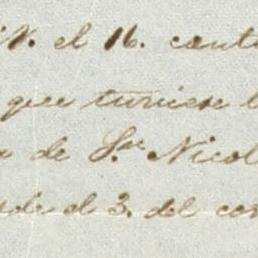 el 16. cont
que tuviese l
de Sn. Nicol
de el 3. del cor